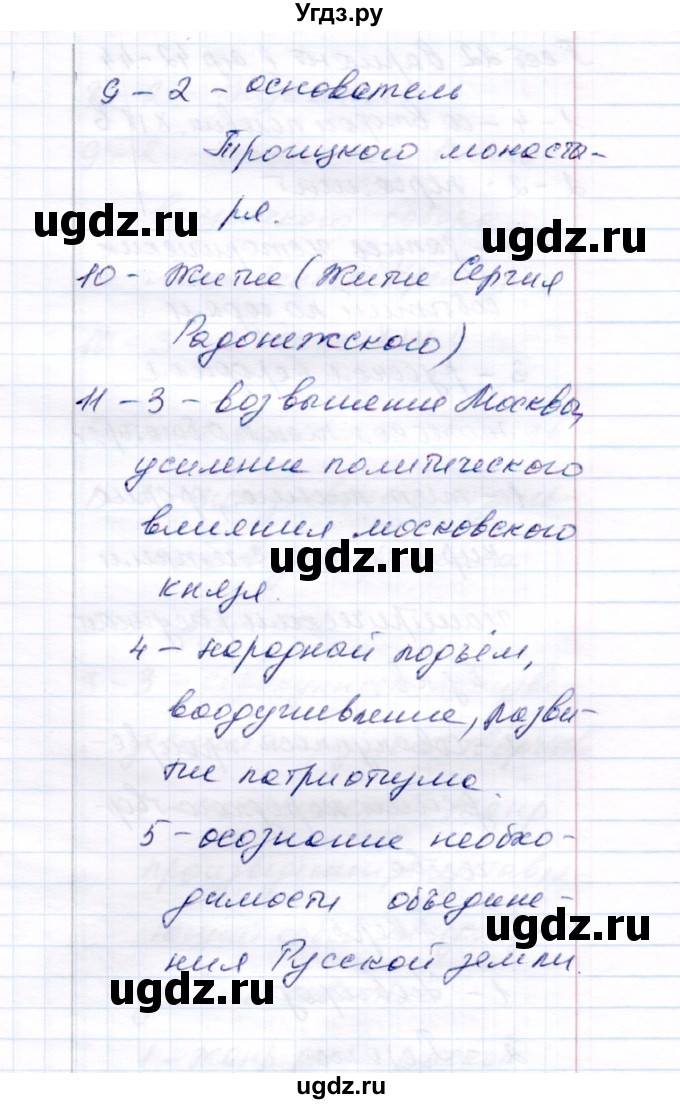 Угдз.ру
9 – 2 – основатель
Троицкого монаста-
ugdz.ru ugdz.ru
ря.
10 – Житие (Житие Сергия
Радонежского)
ugdz.ru
11 – 3 – возвышение Москвы,
усиление политического
влияния московского
ugdz.ru
князя.
4 – народный подъём,
ugdz.ru ugdz.ru
воодушевление, разви-
тие патриотизма.
ugdz.ru
5 – осознание необхо-
димости объедине-
ugdz.ru
ния Русской земли.
ugdz.ru
ugdz.ru